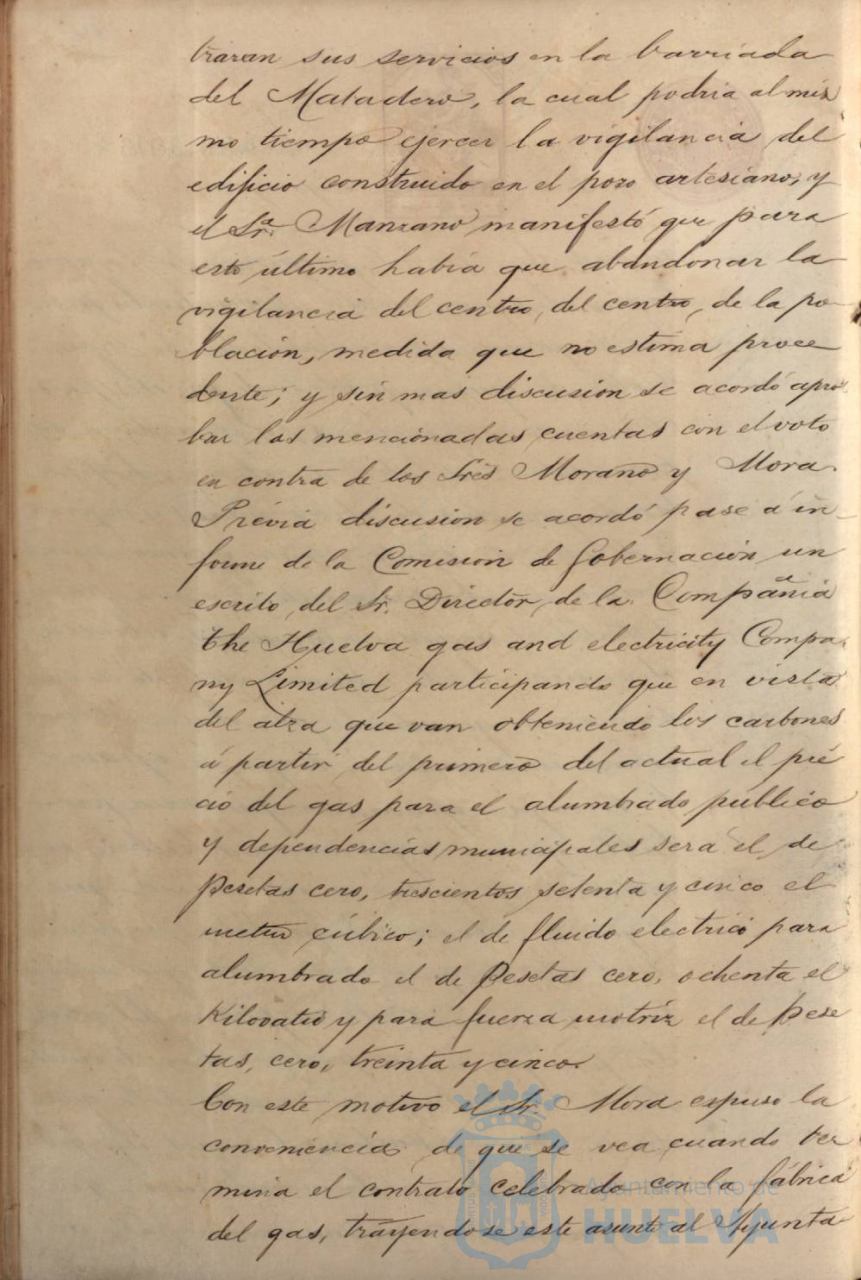 traran sus servicios en la barriada
del Matadero, la cual podria al mis
mo tiempo ejercer la vigilancia del
edificio construido en el pozo artesiano, y
el Sr. Manzano manifestó que para
esto último habia que abandonar la
vigilancia del centro, del centro, de la po-
blación, medida que no estima proce
dente; y sin mas discusion se acordó apro
bar las mencionadas cuentas con el voto
en contra de los Sres Morano y Mora.
Prévia discusion se acordó pase á in-
forme de la Comision de Gobernación un
escrito del Sr. Director de la Compañia
the Huelva gas and electricity Compa
ny Limited participando que en vista
del alza que van obteniendo los carbones
á partir del primero del actual el pre
cio del gas para el alumbrado publico
y dependencias municipales será el de
pesetas cero, trescientos setenta y cinco el
metro cúbico; el de fluido electrico para
alumbrado el de pesetas cero, ochenta el
Kilovatio y para fuerza motriz el de pese
tas, cero, treinta y cinco.
Con este motivo el Sr. Mora espuso la
conveniencia de que se vea cuando ter
mina el contrato celebrado con la fábrica
del gas, trayendose este asunto al Ayunta
Ayuntamiento de
HUELVA